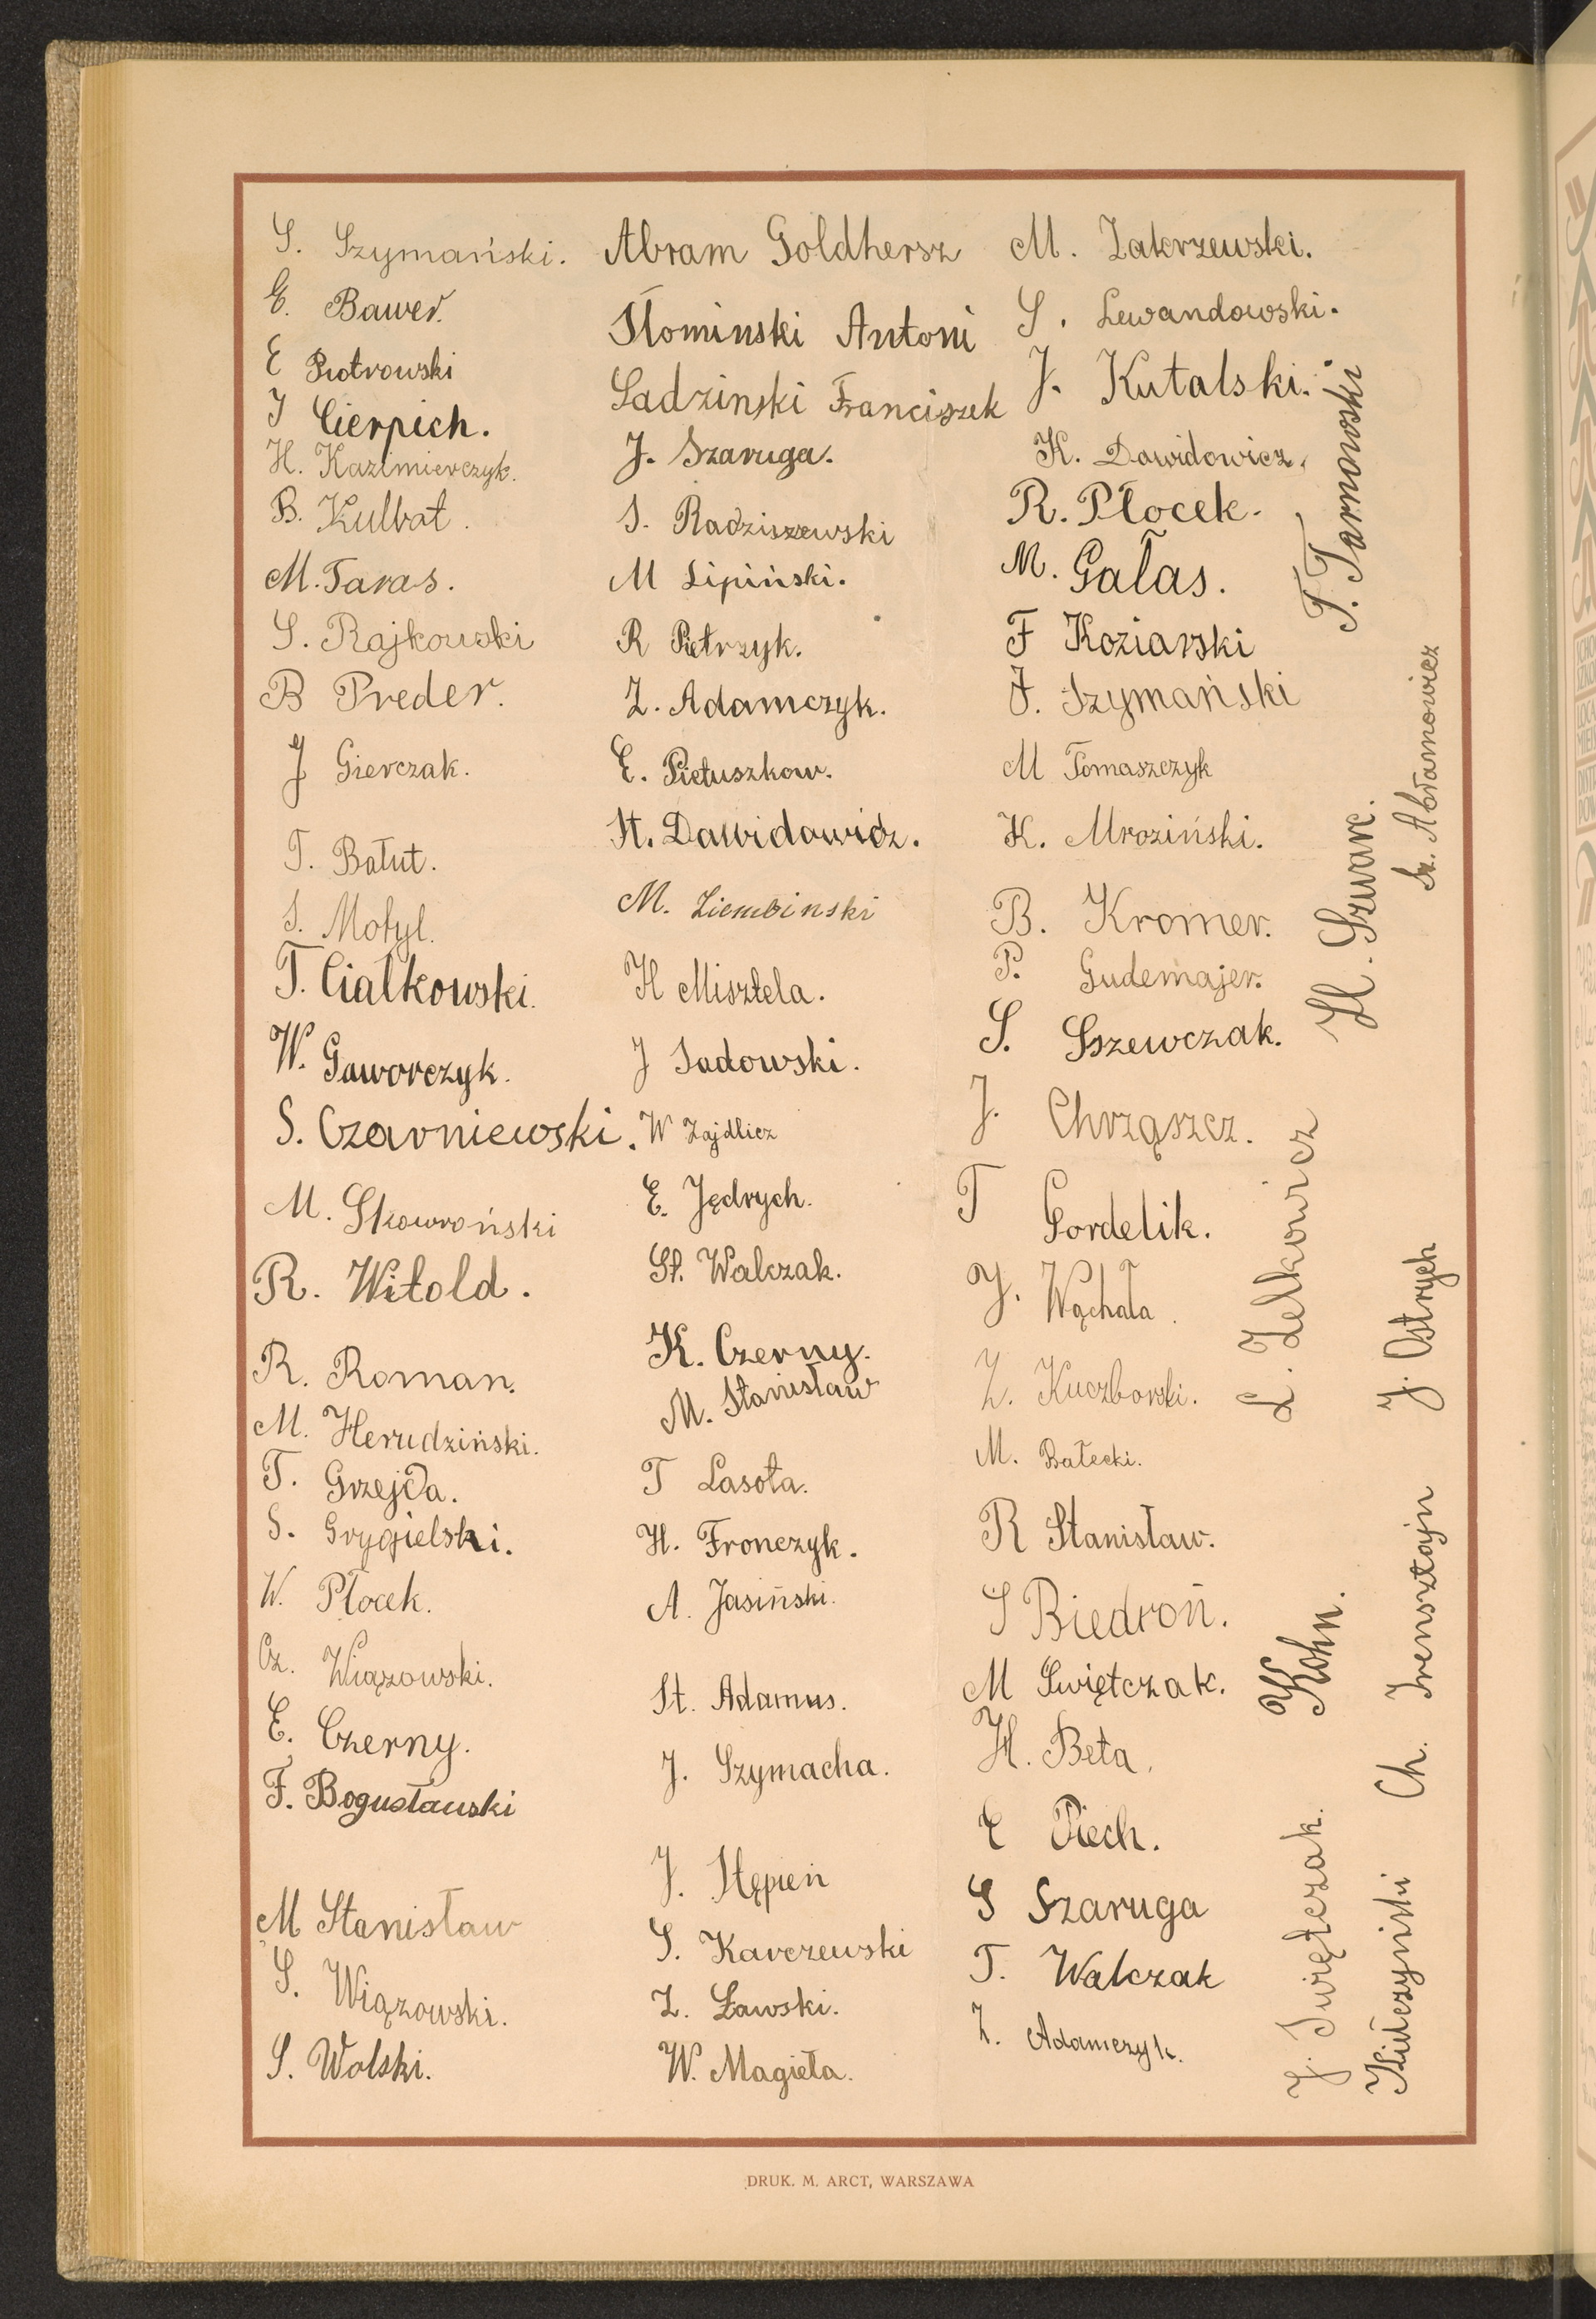 S. Szymański.
E. Bawer.
E Piotrowski
J Cierpich.
H. Kazimierczyk.
B. Kulbat.
M. Taras.
S. Rajkowski
B Preder.
J Gierczak.
T. Bałut.
S. Motyl.
T. Ciałkowski.
W. Gaworczyk.
S. Czarniewski.
M. Skowroński
R. Witold.
R. Roman.
M. Herudziński.
T. Grzejda.
S. Grygielski.
W. Płocek.
Cz. Wiązowski.
E. Czerny.
F. Bogusławski
M Stanisław
S. Wiązowski.
S. Wolski.
Abram Goldhersz
Słominski Antoni
Sadzinski Franciszek
J. Szaruga.
S. Radziszewski
M Lipiński.
R Pietrzyk.
Z. Adamczyk.
E. Pietuszkow.
St. Dawidowicz.
M. Ziembinski
H Misztela.
J Sadowski.
W Zajdlicz
E. Jędrych.
St. Walczak.
K. Czerny.
M. Stanisław
T Lasota.
H. Fronczyk.
A. Jasiński.
St. Adamus.
J. Szymacha.
J. Stępień
S. Karczewski
Z. Ławski.
W. Magieła.
M. Zakrzewski.
S. Lewandowski.
J. Kutalski.
K. Dawidowicz.
R. Płocek.
M. Gałas.
F Koziarski
J. Szymański
M Tomaszczyk
K. Mroziński.
B. Kromer.
P. Gudemajer.
S. Sszewczak.
J. Chrząszcz.
T Gordelik.
J. Wąchała.
Z. Kuczborski.
M. Bałecki.
R Stanisław.
S Biedroń.
M Świętczak.
H. Beta.
E Piech.
S Szaruga
T. Walczak
Z. Adamczyk.
T. Tarnowski
H. Szwarc.
L. Zelkowicz
Kohn.
J. Święłczak.
Sz. Abramowicz
J. Ostrych
Ch. Irensztajn
Kiełczyński
DRUK. M. ARCT, WARSZAWA